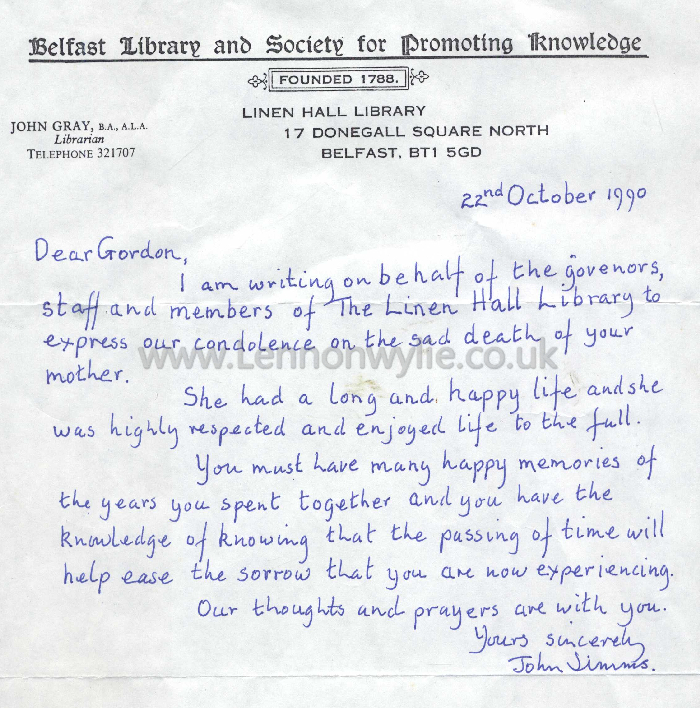 Belfast Library and Society for Promoting Knowledge
FOUNDED 1788.
LINEN HALL LIBRARY
17 DONEGALL SQUARE NORTH
BELFAST, BT1 5GD
JOHN GRAY, B.A., A.L.A.
Librarian
TELEPHONE 321707
22nd October 1990
Dear Gordon,
I am writing on behalf of the govenors,
staff and members of The Linen Hall Library to
express our condolence on the sad death of your
www.Lennonwylie.co.uk
mother.
She had a long and happy life and she
was highly respected and enjoyed life to the full.
You must have many happy memories of
the years you spent together and you have the
knowledge of knowing that the passing of time will
help ease the sorrow that you are now experiencing.
Our thoughts and prayers are with you.
Yours sincerely
John Simms.